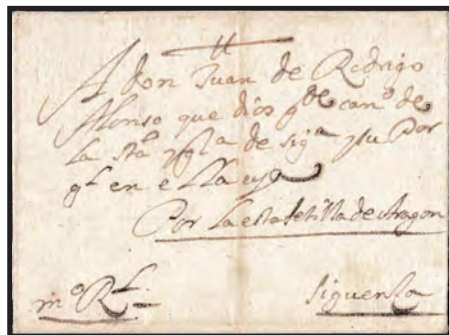 A don Juan de Rodrigo
Alonso que dios gde canº de
la stª ygla de sigª y su Por
gl en ella
Por la estafetilla de Aragon
mº Rl.
Siguenza